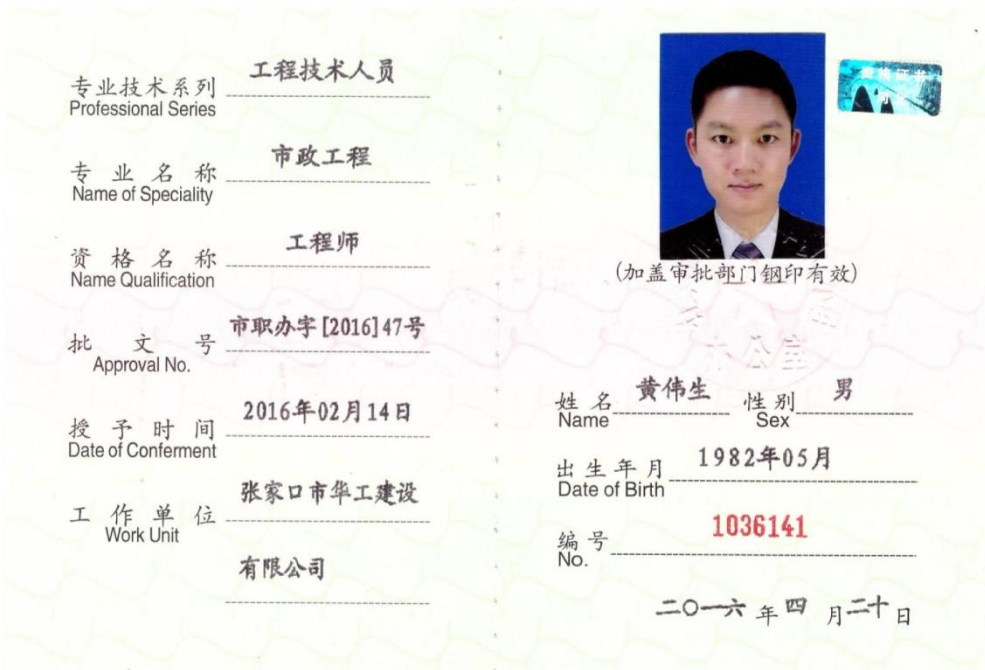 专业技术系列 工程技术人员
Professional Series
专业名称 市政工程
Name of Speciality
资格名称 工程师
Name Qualification
批文号 市职办字[2016]47号
Approval No.
授予时间 2016年02月14日
Date of Conferment
工作单位 张家口市华工建设
Work Unit
有限公司
资格证书
(加盖审批部门钢印有效)
办公室
姓名 黄伟生 性别 男
Name Sex
出生年月 1982年05月
Date of Birth
编号 1036141
No.
二〇一六年四月二十日